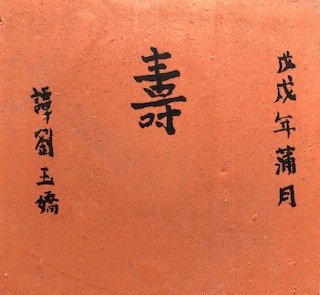 戊戌年蒲月
壽
諱劉玉嬌